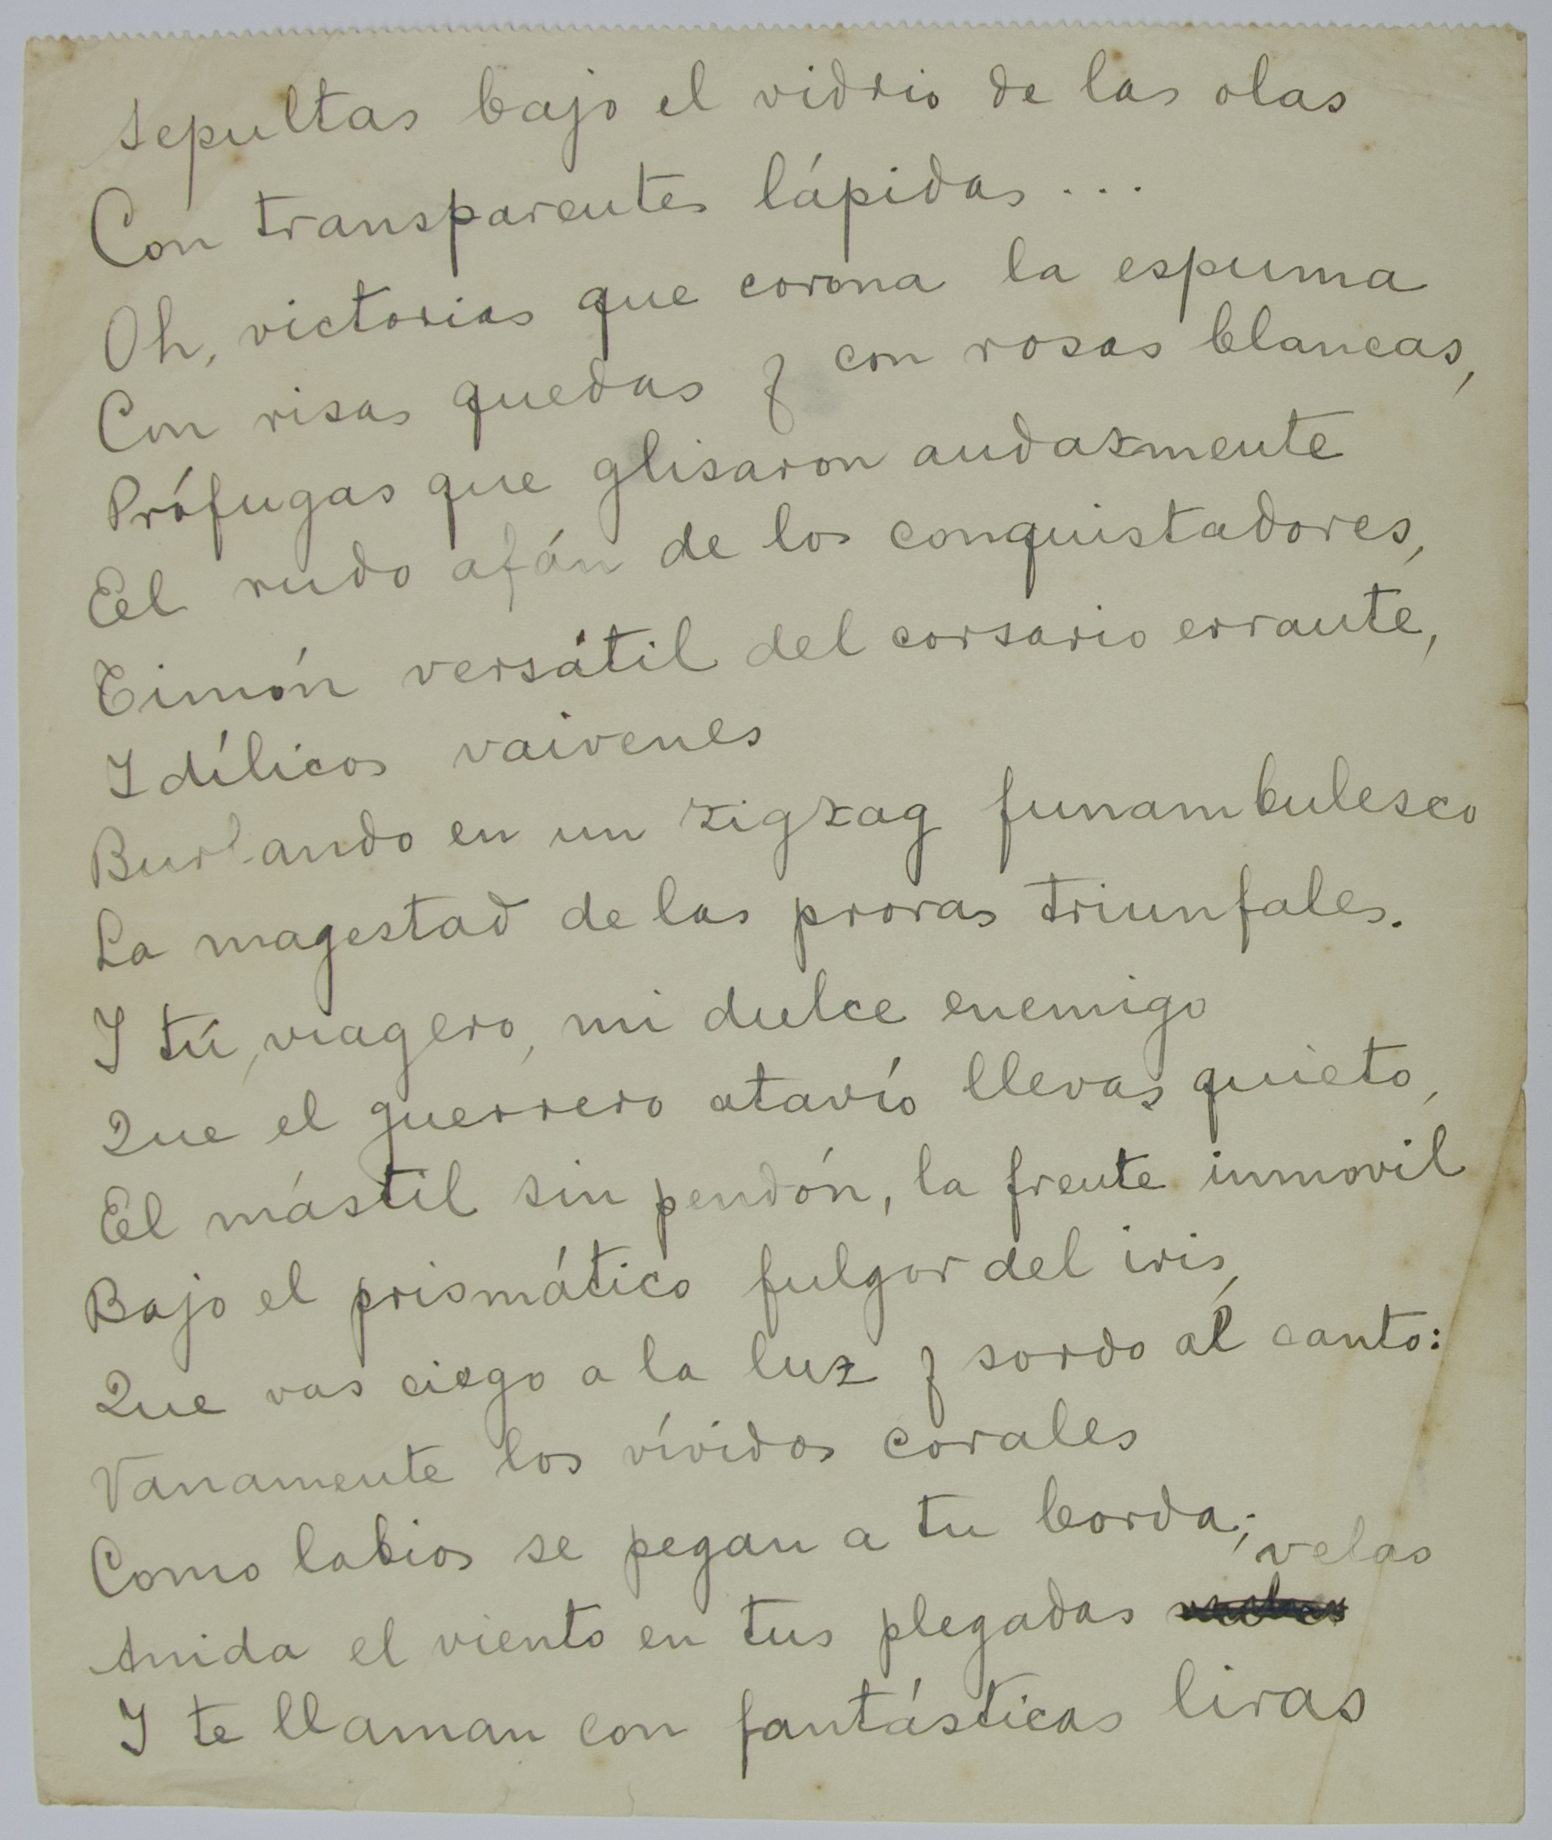 Sepultas bajo el vidrio de las olas
Con transparentes lápidas...
Oh, victorias que corona la espuma
Con risas quedas y con rosas blancas,
Prófugas que glisaron audazmente
El rudo afán de los conquistadores,
Timón versátil del corsario errante,
Idílicos vaivenes
Burlando en un zigzag funambulesco
La magestad de las proras triunfales.
I tú, viagero, mi dulce enemigo
Que el guerrero atavío llevas quieto,
El mástil sin pendón, la frente inmovil
Bajo el prismático fulgor del iris,
Que vas ciego a la luz y sordo al canto:
Vanamente los vívidos corales
Como labios se pegan a tu borda;
velas
Anida el viento en tus plegadas
I te llaman con fantásticas liras